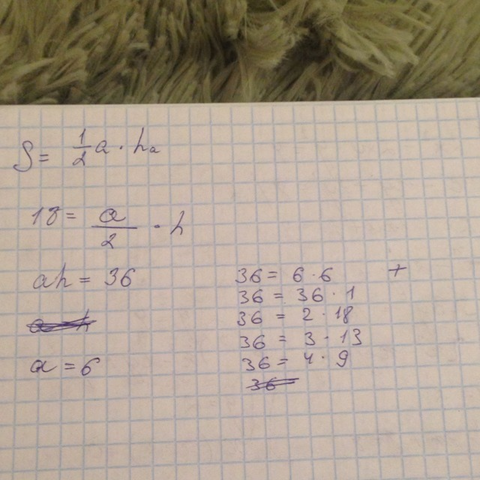 S = 1/2 a · hₐ
18 = a/2 · h
ah = 36
a = 6
36 = 6 · 6 +
36 = 36 · 1
36 = 2 · 18
36 = 3 · 13
36 = 4 · 9
36